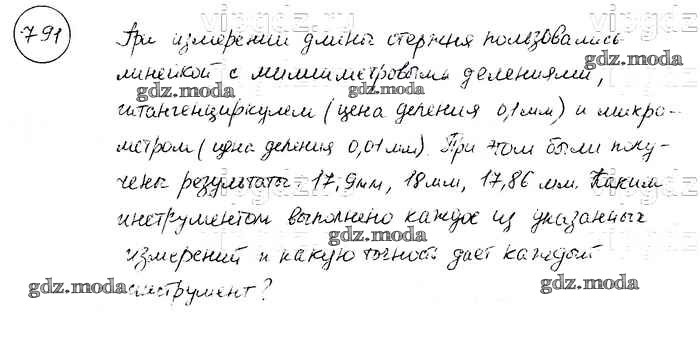 791
При измерении длины стержня пользовались
линейкой с миллиметровыми делениями,
штангенциркулем (цена деления 0,1мм) и микро-
метром (цена деления 0,01мм). При этом были полу-
чены результаты: 17,9мм, 18мм, 17,86 мм. Каким
инструментом выполнено каждое из указанных
измерений и какую точность дает каждый
инструмент?
vipgdz.net
gdz.moda
gdz.moda
gdz.moda
gdz.moda
gdz.moda
gdz.moda
gdz.moda
gdz.moda